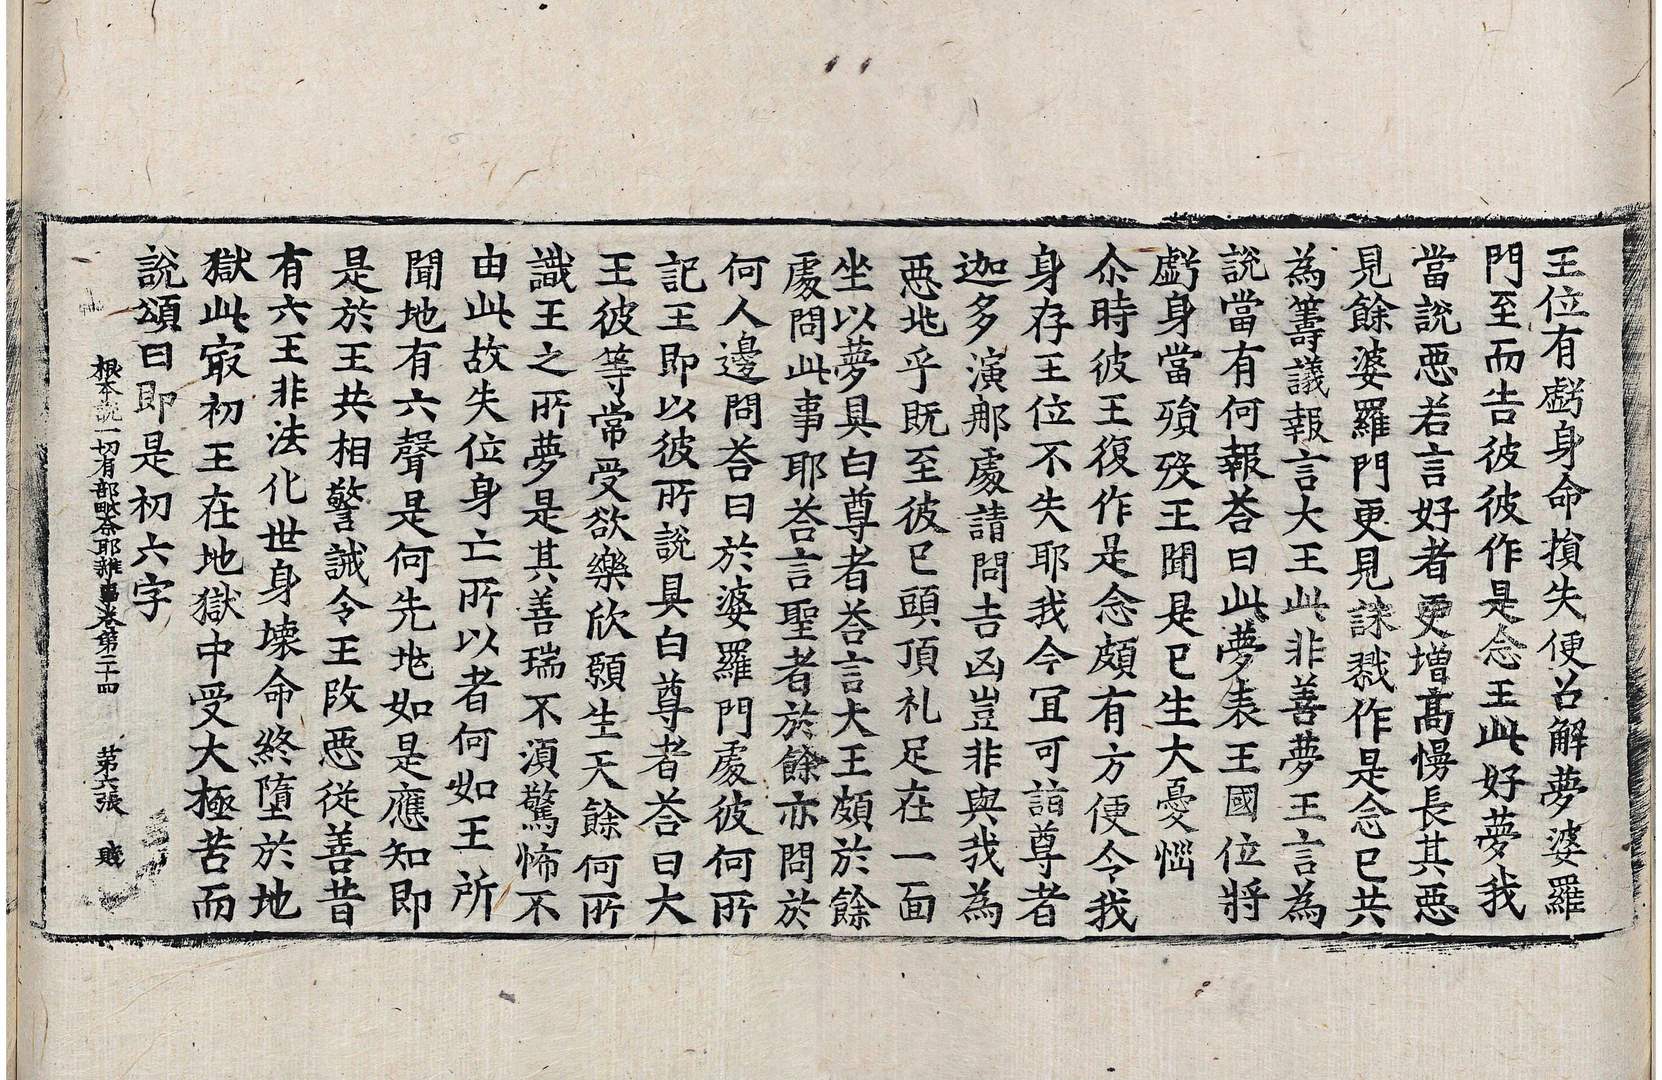 王位有虧身命損失便召解夢婆羅
門至而告彼彼作是念王此好夢我
當說惡若言好者更增高慢長其惡
見餘婆羅門更見誅戮作是念已共
為籌議報言大王此非善夢王言為
說當有何報荅曰此夢表王國位將
虧身當殞歿王聞是已生大憂惱
尒時彼王復作是念頗有方便令我
身存王位不失耶我今冝可詣尊者
迦多演那處請問吉凶豈非與我為
惡兆乎既至彼已頭頂礼足在一面
坐以夢具白尊者荅言大王頗於餘
處問此事耶荅言聖者於餘亦問於
何人邊問荅曰於婆羅門處彼何所
記王即以彼所說具白尊者荅曰大
王彼等常受欲樂欣願生天餘何所
識王之所夢是其善瑞不湏驚怖不
由此故失位身亡所以者何如王所
聞地有六聲是何先兆如是應知即
是於王共相警誡令王改惡從善昔
有六王非法化世身壞命終墮於地
獄此㝡初王在地獄中受大極苦而
說頌曰即是初六字
根本說一切有部毗奈耶雜事卷第二十四 第六張 賤